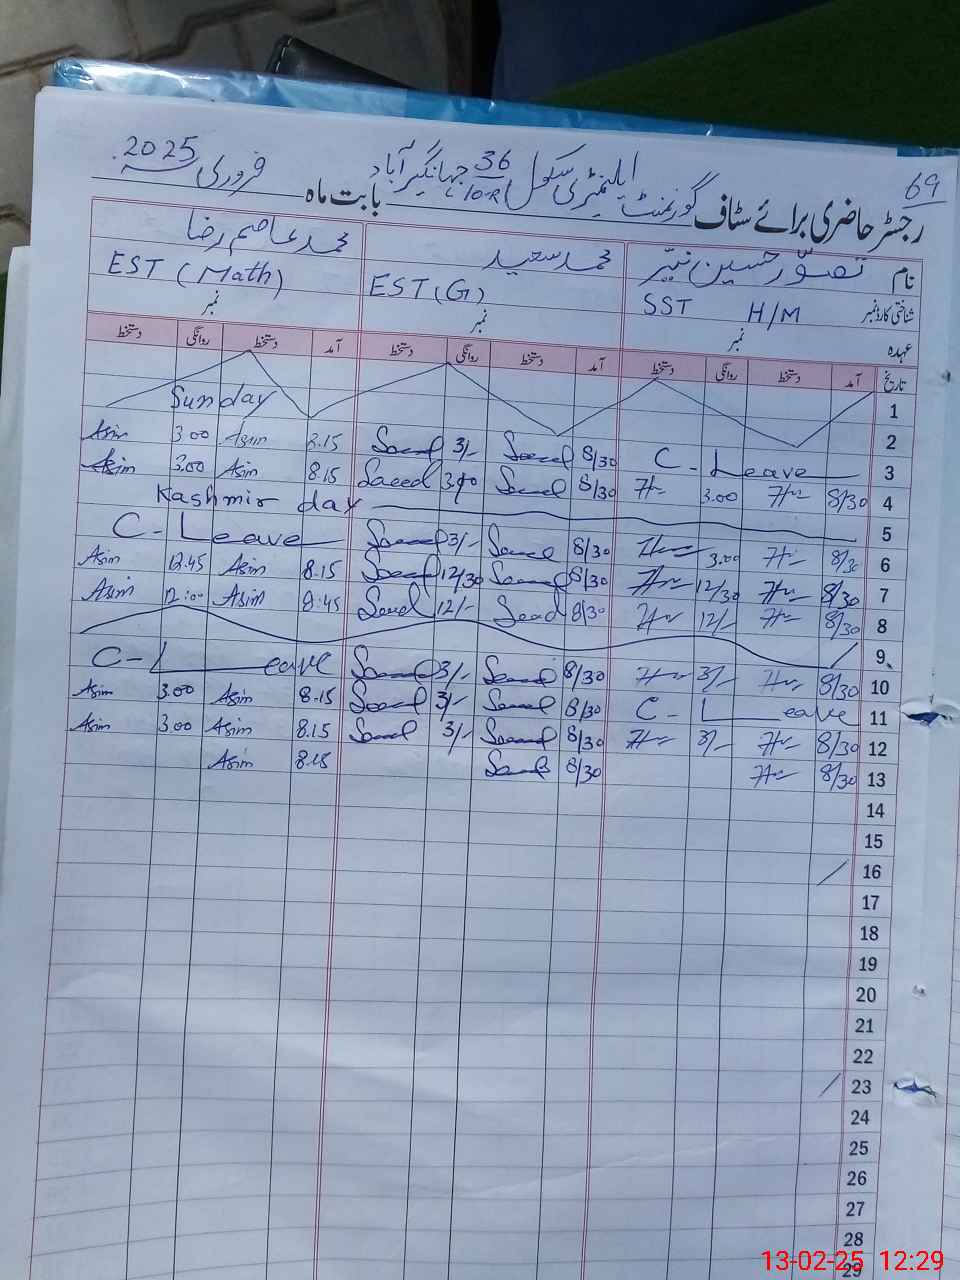 69
رجسٹر حاضری برائے سٹاف گورنمنٹ ایلیمنٹری سکول 36/10-R جہانگیرآباد بابت ماہ فروری 2025
نام تصوّر حسین نیّر محمد سعید محمد عاصم رضا
شناختی کارڈ نمبر
عہدہ SST H/M EST (G) EST (Math)
نمبر نمبر نمبر
تاریخ آمد دستخط روانگی دستخط آمد دستخط روانگی دستخط آمد دستخط روانگی دستخط
1
Sunday 2
Asim 3.00 Asim 8.15 Saeed 3/- Saeed 8/30 C-Leave 3
Asim 3.00 Asim 8.15 Saeed 3.00 Saeed 8/30 3.00 8/30 4
Kashmir day 5
C-Leave Saeed 3/- Saeed 8/30 3.00 8/30 6
Asim 12.45 Asim 8.15 Saeed 12/30 Saeed 8/30 12/30 8/30 7
Asim 12:00 Asim 8:45 Saeed 12/- Saeed 8/30 12/- 8/30 8
9
C-Leave Saeed 3/- Saeed 8/30 3/- 8/30 10
Asim 3.00 Asim 8.15 Saeed 3/- Saeed 8/30 C-Leave 11
Asim 3.00 Asim 8.15 Saeed 3/- Saeed 8/30 3/- 8/30 12
Asim 8.15 Saeed 8/30 8/30 13
14
15
16
17
18
19
20
21
22
23
24
25
26
27
28
29
13-02-25 12:29